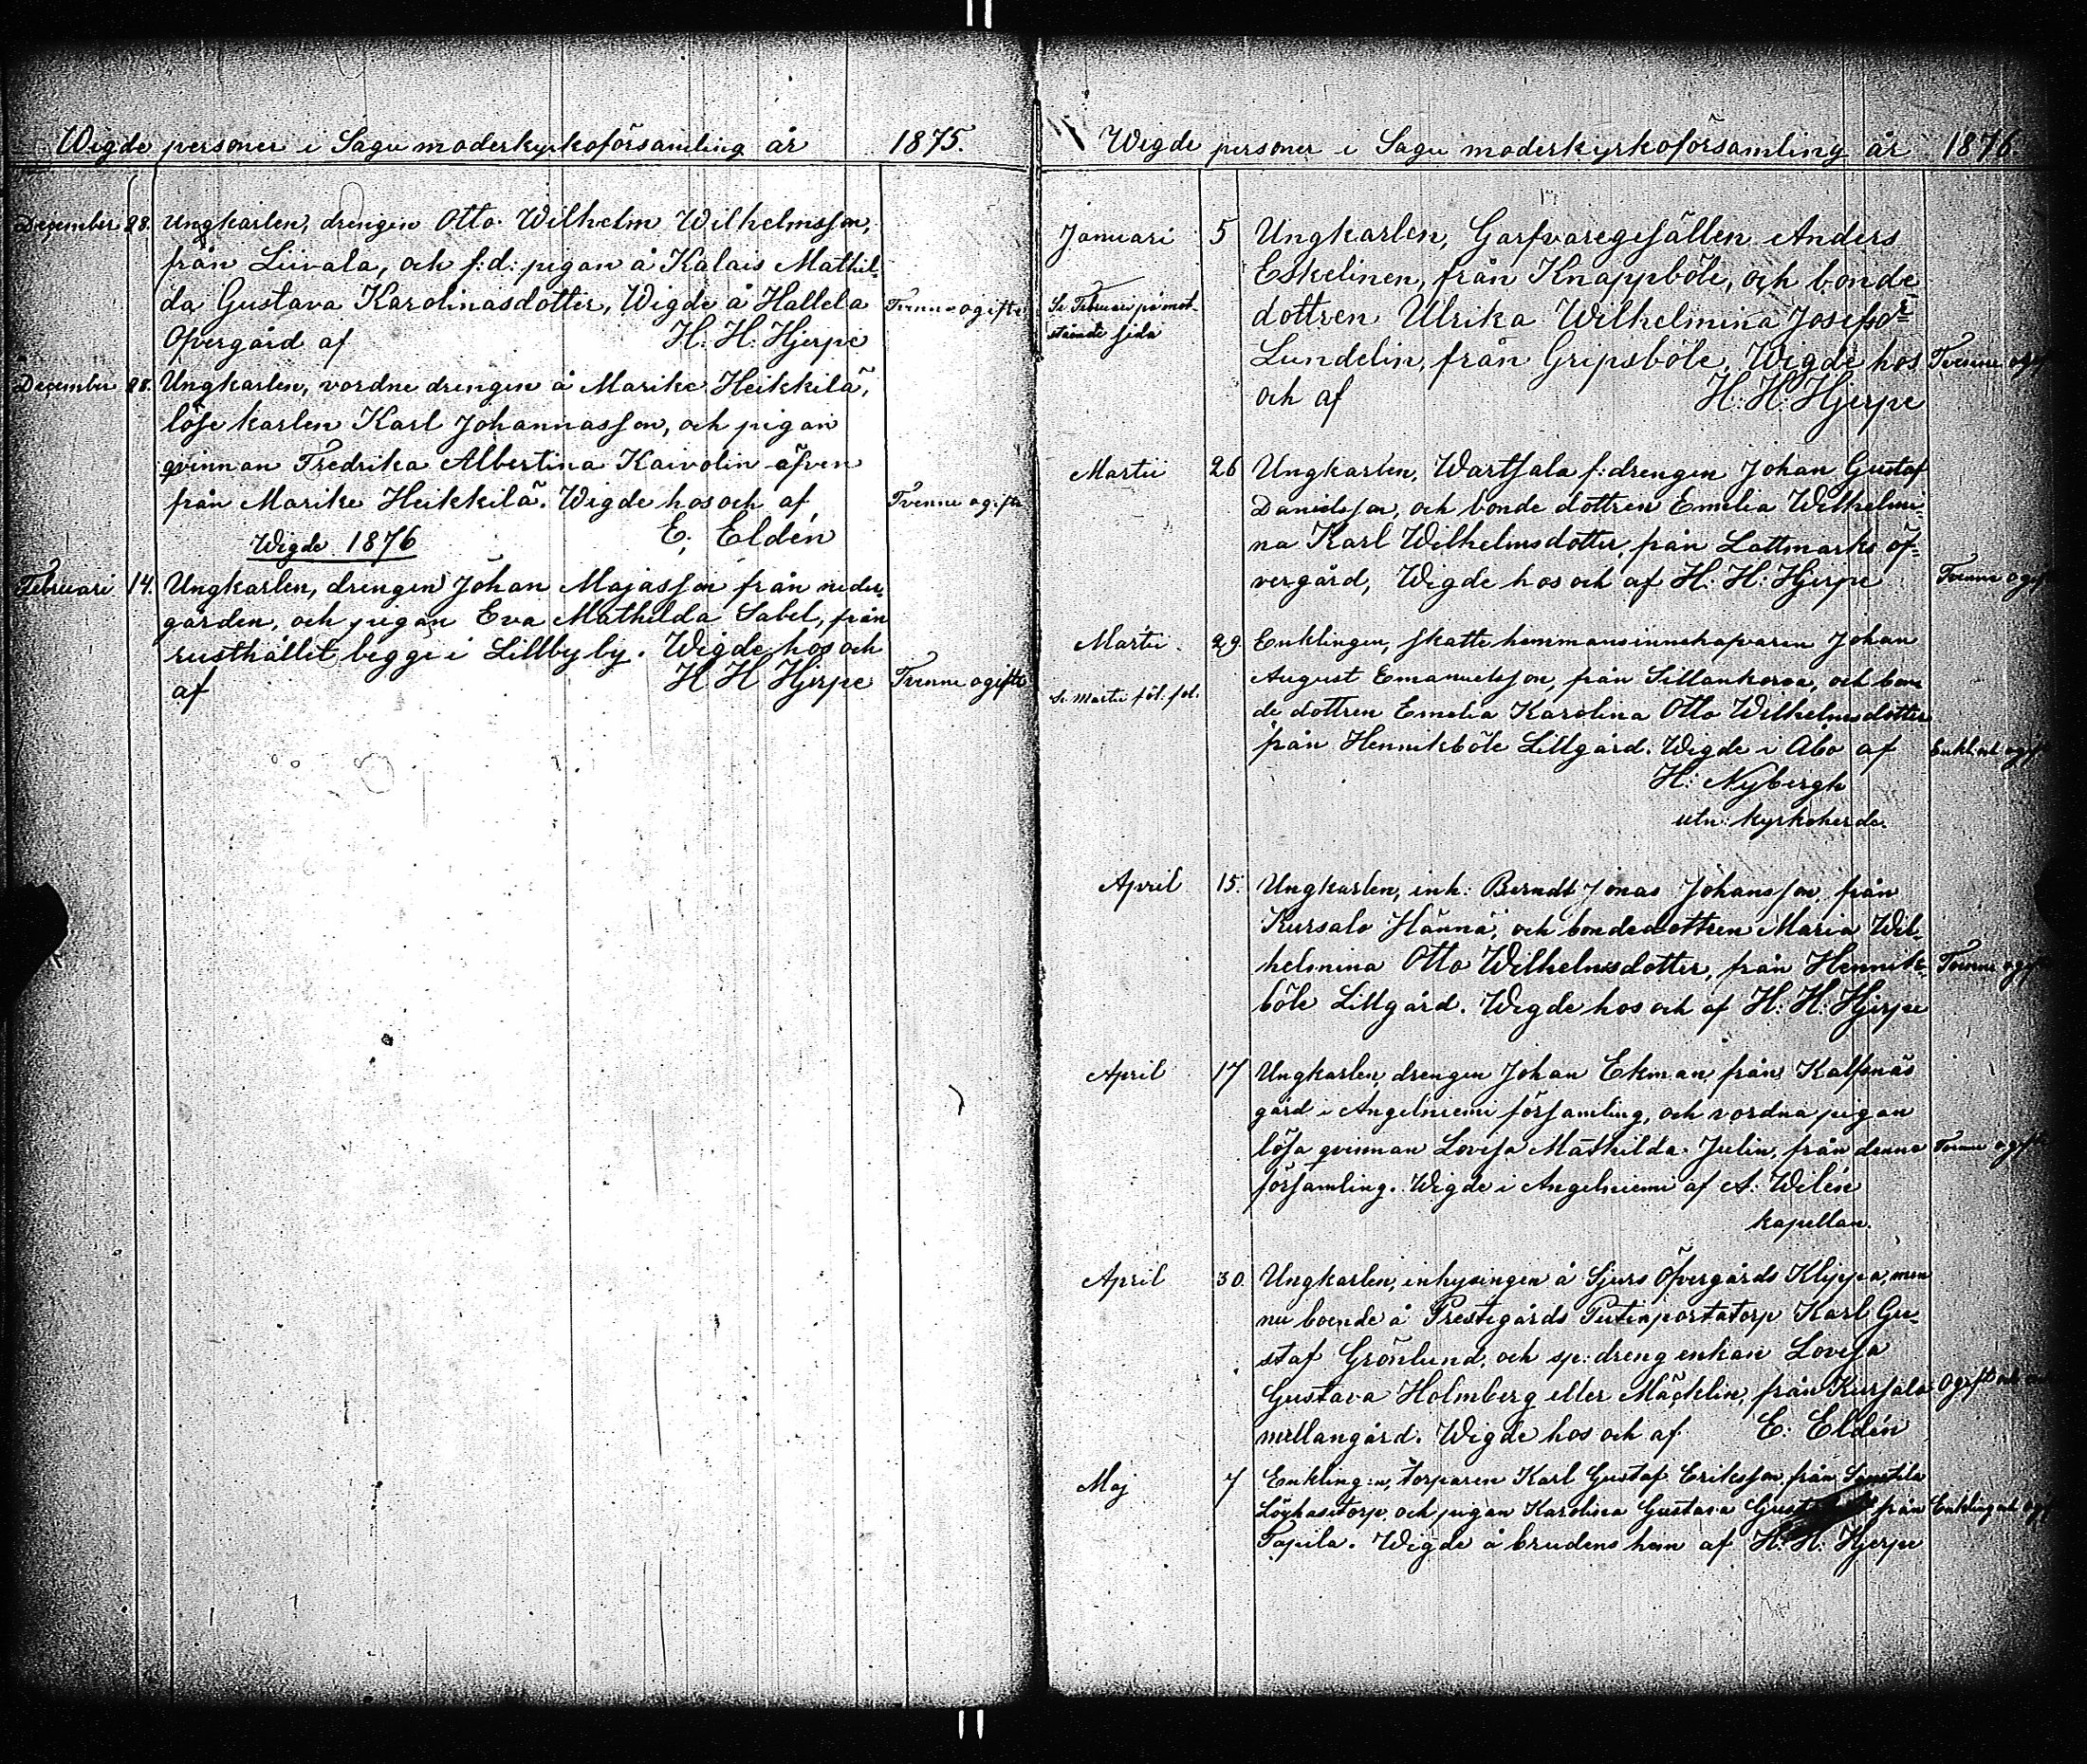 Wigde personer i Sagu moderkyrkoförsamling år 1875.
December 28. Ungkarlen, drengen Otto Wilhelm Wilhelmsson,
från Liivala, och f:d: pigan å Kalais Mathil-
da Gustava Karolinasdotter, Wigde å Hallela Tvenne ogifte
Öfvergård af H. H. Hjerpe
December 28. Ungkarlen, vordne drengen å Marike Heikkilä,
löse karlen Karl Johannasson, och pigan
qvinnan Fredrika Albertina Kaivolin äfven
från Marike Heikkilä. Wigde hos och af Tvenne ogifte
E. Eldén
Wigde 1876
Februari 14. Ungkarlen, drengen Johan Majasson från neder-
gården, och pigan Eva Mathilda Sabel, från
rusthållet begge i Lillby by. Wigde hos och
af H H Hjerpe Tvenne ogifte
Wigde personer i Sagu moderkyrkoförsamling år 1876
Januari 5 Ungkarlen, Garfvaregesällen Anders
Eskelinen, från Knappböle, och bonde
Se Februari på mot-
stående sida
dottren Ulrika Wilhelmina Josefsdr
Lundelin, från Gripsböle. Wigde hos Tvenne
och af H: H: Hjerpe
Martii 26 Ungkarlen, Wartsala f: drengen Johan Gustaf
Danielsson, och bonde dottren Emelia Wilhelmi-
na Karl Wilhelmsdotter, från Lattmarks öf-
vergård, Wigde hos och af H: H: Hjerpe Tvenne
Martii 29. Enklingen, skattehemmansinnehafvaren Johan
August Emanuelsson, från Sillankorva, och bon
Se Martii föl. fol.
de dottren Emelia Karolina Otto Wilhelmsdotter
från Hennikböle Lillgård. Wigde i Åbo af
H: Nybergh
utn: kyrkoherde.
April 15. Ungkarlen, inh: Berndt Jonas Johansson, från
Kursalo Hännä, och bondedottren Maria Wil-
helmina Otto Wilhelmsdotter, från Hennik- Tvenne
böle Lillgård. Wigde hos och af H: H: Hjerpe
April 17 Ungkarlen, drengen Johan Ekman, från Kalfsnäs
gård i Angelniemi församling, och vordna pigan
lösa qvinnan Lovisa Mathilda Julin, från denna Tvenne
församling. Wigde i Angelniemi af A: Wilén
kapellan.
April 30. Ungkarlen, inhysingen å Sjurs Öfvergårds Klippa, men
nu boende å Prestegårds Putinportatorp Karl Gu-
staf Grönlund, och sp: dreng enkan Lovisa
Gustava Holmberg eller Mäcklin, från Kursala Ogift och
mellangård. Wigde hos och af E: Eldén
Maj 7 Enkling:n, torparen Karl Gustaf Eriksson, från
torp, och pigan Karolina Gustava från Enkling och
Papila. Wigde å brudens hem af H: H: Hjerpe